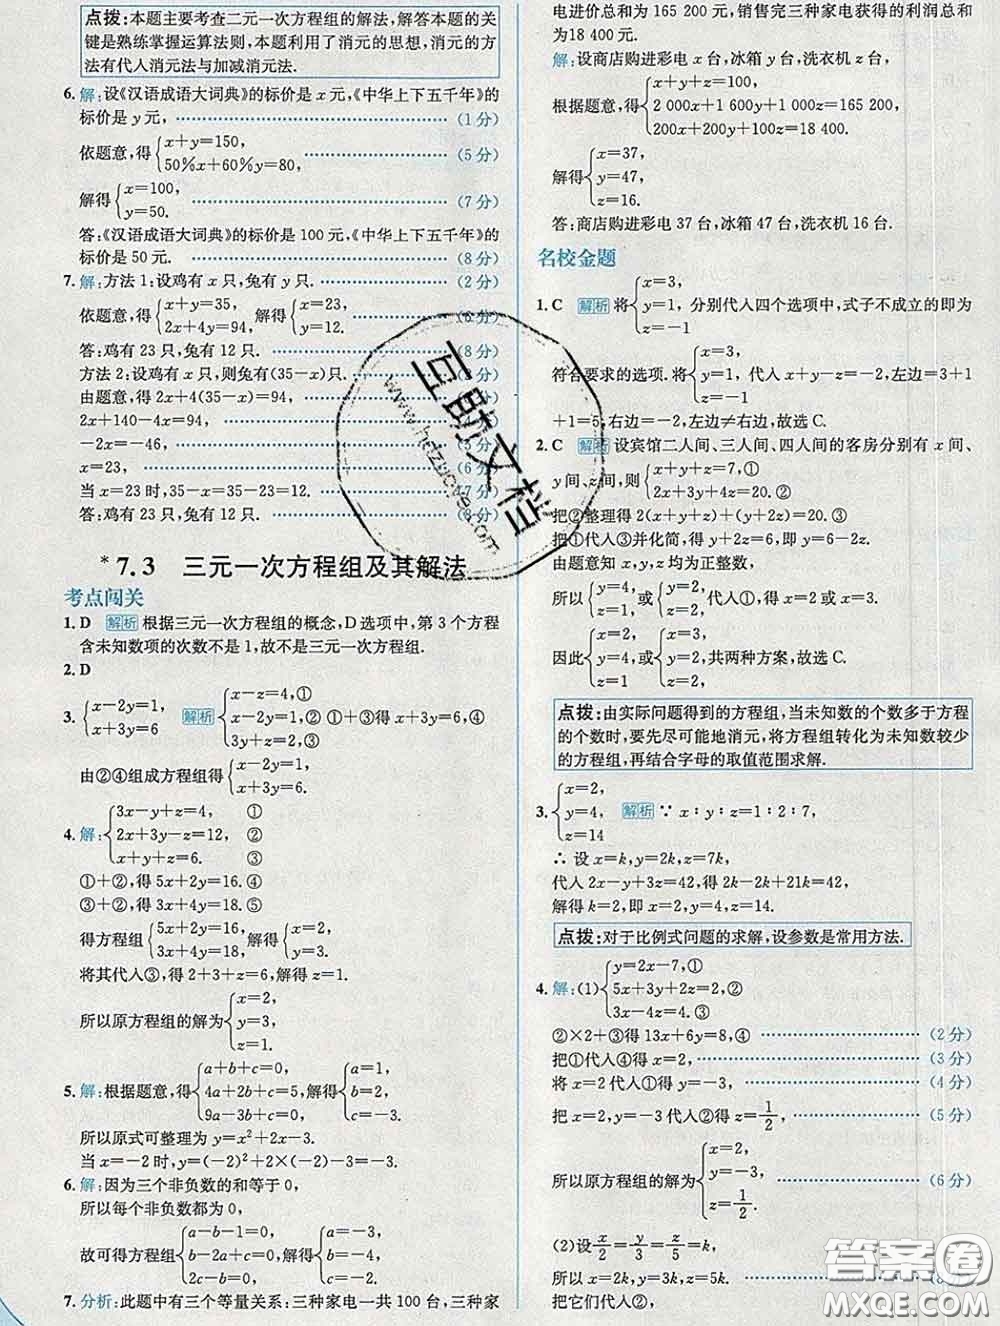 点拨:本题主要考查二元一次方程组的解法,解答本题的关
键是熟练掌握运算法则,本题利用了消元的思想,消元的方
法有代入消元法与加减消元法.
6. 解:设《汉语成语大词典》的标价是 x 元,《中华上下五千年》的
标价是 y 元, (1 分)
依题意,得{x+y=150,
50%x+60%y=80, (5 分)
解得{x=100,
y=50. (7 分)
答:《汉语成语大词典》的标价是 100 元,《中华上下五千年》的
标价是 50 元. (8 分)
7. 解:方法 1:设鸡有 x 只,兔有 y 只. (2 分)
依题意,得{x+y=35,
2x+4y=94, 解得{x=23,
y=12. (6 分)
答:鸡有 23 只,兔有 12 只. (8 分)
方法 2:设鸡有 x 只,则兔有(35-x)只.
由题意,得 2x+4(35-x)=94,
2x+140-4x=94,
-2x=-46, (5 分)
x=23, (6 分)
当 x=23 时,35-x=35-23=12. (7 分)
答:鸡有 23 只,兔有 12 只. (8 分)
*7.3 三元一次方程组及其解法
考点闯关
1. D 解析 根据三元一次方程组的概念,D 选项中,第 3 个方程
含未知数项的次数不是 1,故不是三元一次方程组.
2. D
3. {x-2y=1,
x+3y=6 解析 {x-z=4,①
x-2y=1,②
3y+z=2.③
①+③得 x+3y=6,④
由②④组成方程组得{x-2y=1,
x+3y=6.
4. 解:{3x-y+z=4, ①
2x+3y-z=12, ②
x+y+z=6. ③
①+②,得 5x+2y=16. ④
②+③,得 3x+4y=18. ⑤
得方程组{5x+2y=16,
3x+4y=18, 解得{x=2,
y=3.
将其代入③,得 2+3+z=6,解得 z=1.
所以原方程组的解为{x=2,
y=3,
z=1.
5. 解:根据题意,得{a+b+c=0,
4a+2b+c=5,
9a-3b+c=0, 解得{a=1,
b=2,
c=-3.
所以原式可整理为 y=x²+2x-3.
当 x=-2 时,y=(-2)²+2×(-2)-3=-3.
6. 解:因为三个非负数的和等于 0,
所以每个非负数都为 0,
故可得方程组{a-b-1=0,
b-2a+c=0,
2c-b=0, 解得{a=-3,
b=-4,
c=-2.
7. 分析:此题中有三个等量关系:三种家电一共 100 台,三种家
电进价总和为 165 200 元,销售完三种家电获得的利润总和
为18 400 元.
解:设商店购进彩电 x 台,冰箱 y 台,洗衣机 z 台.
根据题意,得{x+y+z=100,
2 000x+1 600y+1 000z=165 200,
200x+200y+100z=18 400.
解得{x=37,
y=47,
z=16.
答:商店购进彩电 37 台,冰箱 47 台,洗衣机 16 台.
名校金题
1. C 解析 将{x=3,
y=1,
z=-1 分别代入四个选项中,式子不成立的即为
符合要求的选项. 将{x=3,
y=1,
z=-1 代入 x+y-z=-2,左边=3+1
+1=5,右边=-2,左边≠右边,故选 C.
2. C 解析 设宾馆二人间、三人间、四人间的客房分别有 x 间、
y 间、z 间,则{x+y+z=7,①
2x+3y+4z=20.②
把②整理得 2(x+y+z)+(y+2z)=20. ③
把①代入③并化简,得 y+2z=6,即 y=6-2z.
由题意知 x,y,z 均为正整数,
所以{y=4,
z=1 或{y=2,
z=2, 代入①,得 x=2 或 x=3,
因此{x=2,
y=4,
z=1 或{x=3,
y=2,
z=2, 共两种方案,故选 C.
点拨:由实际问题得到的方程组,当未知数的个数多于方程
的个数时,要先尽可能地消元,将方程组转化为未知数较少
的方程组,再结合字母的取值范围求解.
3. {x=2,
y=4,
z=14 解析 ∵ x∶y∶z=1∶2∶7,
∴ 设 x=k,y=2k,z=7k,
代入 2x-y+3z=42,得 2k-2k+21k=42,
解得 k=2,即 x=2,y=4,z=14.
点拨:对于比例式问题的求解,设参数是常用方法.
4. 解:(1){y=2x-7,①
5x+3y+2z=2,②
3x-4z=4.③
②×2+③得 13x+6y=8,④ (2 分)
把①代入④得 x=2, (3 分)
将 x=2 代入①得 y=-3, (4 分)
把 x=2,y=-3 代入②得 z=1/2, (5 分)
所以原方程组的解为{x=2,
y=-3,
z=1/2. (6 分)
(2)设 x/2=y/3=z/5=k,
所以 x=2k,y=3k,z=5k.
把它们代入②,
互助文档
www.hdzuoyes.com
答案圈
MXQE.COM